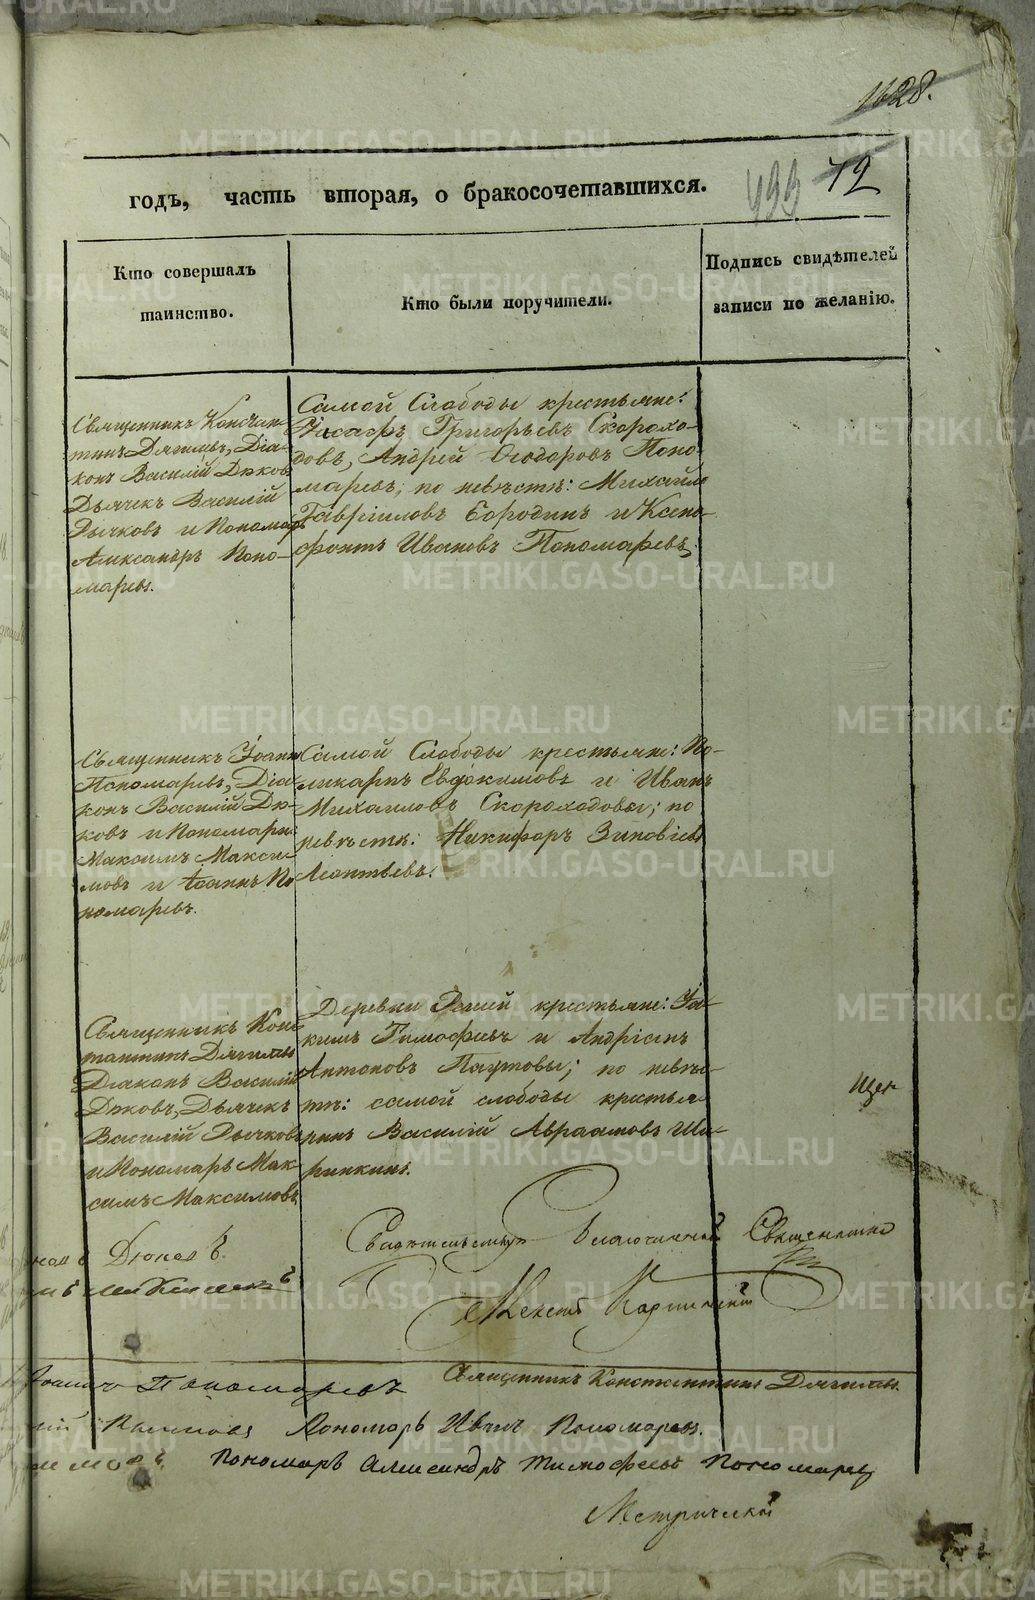 1628.
годъ, часть вторая, о бракосочетавшихся.
499 12
Кто совершалъ
таинство.
Кто были поручители.
Подпись свидѣтелей
записи по желанію.
Священникъ Констан-
тинъ Дягилевъ, Діа-
конъ Василій Дюков
Дьячекъ Василій
Рычковъ и Пономарь
Александръ Поно-
маревъ.
Самой Слободы крестьяне:
Іасафъ Григорьевъ Скорохо-
довъ, Андрей Ѳеодоровъ Поно-
маревъ; по невѣстѣ: Михайло
Гавріиловъ Бородинъ и Ксено-
фонтъ Ивановъ Пономаревъ.
Священникъ Іоаннъ
Пономаревъ, Діа-
конъ Василій Дю-
ковъ и Пономари:
Максимъ Макси-
мовъ и Іоаннъ По
номаревъ.
Самой Слободы крестьяне: По-
ликарпъ Евдокимовъ и Иванъ
Михаиловъ Скороходовы; по
невѣстѣ: Никифоръ Зиновіевъ
Леонтьевъ.
Священникъ Конс
тантинъ Дягилевъ
Діаконъ Василій
Дюковъ, Дьячекъ
Василій Рычковъ
и Пономарь Мак-
симъ Максимовъ
Деревни крестьяне: Іа-
кимъ Тимофѣевъ и Андріанъ
Антоновъ Паутовы; по невѣс-
тѣ: самой слободы крестья
нинъ Василій Авраамовъ Ши-
ринкинъ.
Дюковъ.
Свидѣтельствую Благочинный Священникъ
Алексѣй
Іоаннъ Пономаревъ
Священникъ Константинъ Дягилевъ.
Пономарь Иванъ Пономаревъ.
Пономарь Александръ Тимофеевъ Пономаревъ
Метрической
METRIKI.GASO-URAL.RU